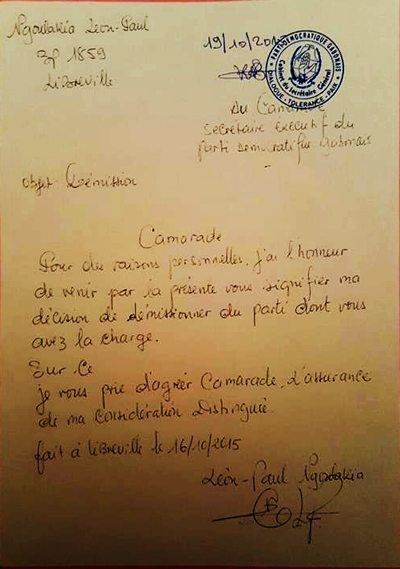 Ngoulakia Léon-Paul
BP 1859
Libreville
19/10/201
PARTI DEMOCRATIQUE GABONAIS
Cabinet du Secrétaire Général
DIALOGUE - TOLERANCE - PAIX
Au Camarade
Secrétaire executif du
Parti Democratique Gabonais
Objet: Démission
Camarade
Pour des raisons personnelles, j'ai l'honneur
de venir par la présente vous signifier ma
décision de démissionner du parti dont vous
avez la charge.
Sur ce
je vous prie d'agréer Camarade, l'assurance
de ma considération Distinguée.
fait à Libreville le 16/10/2015
Léon-Paul Ngoulakia